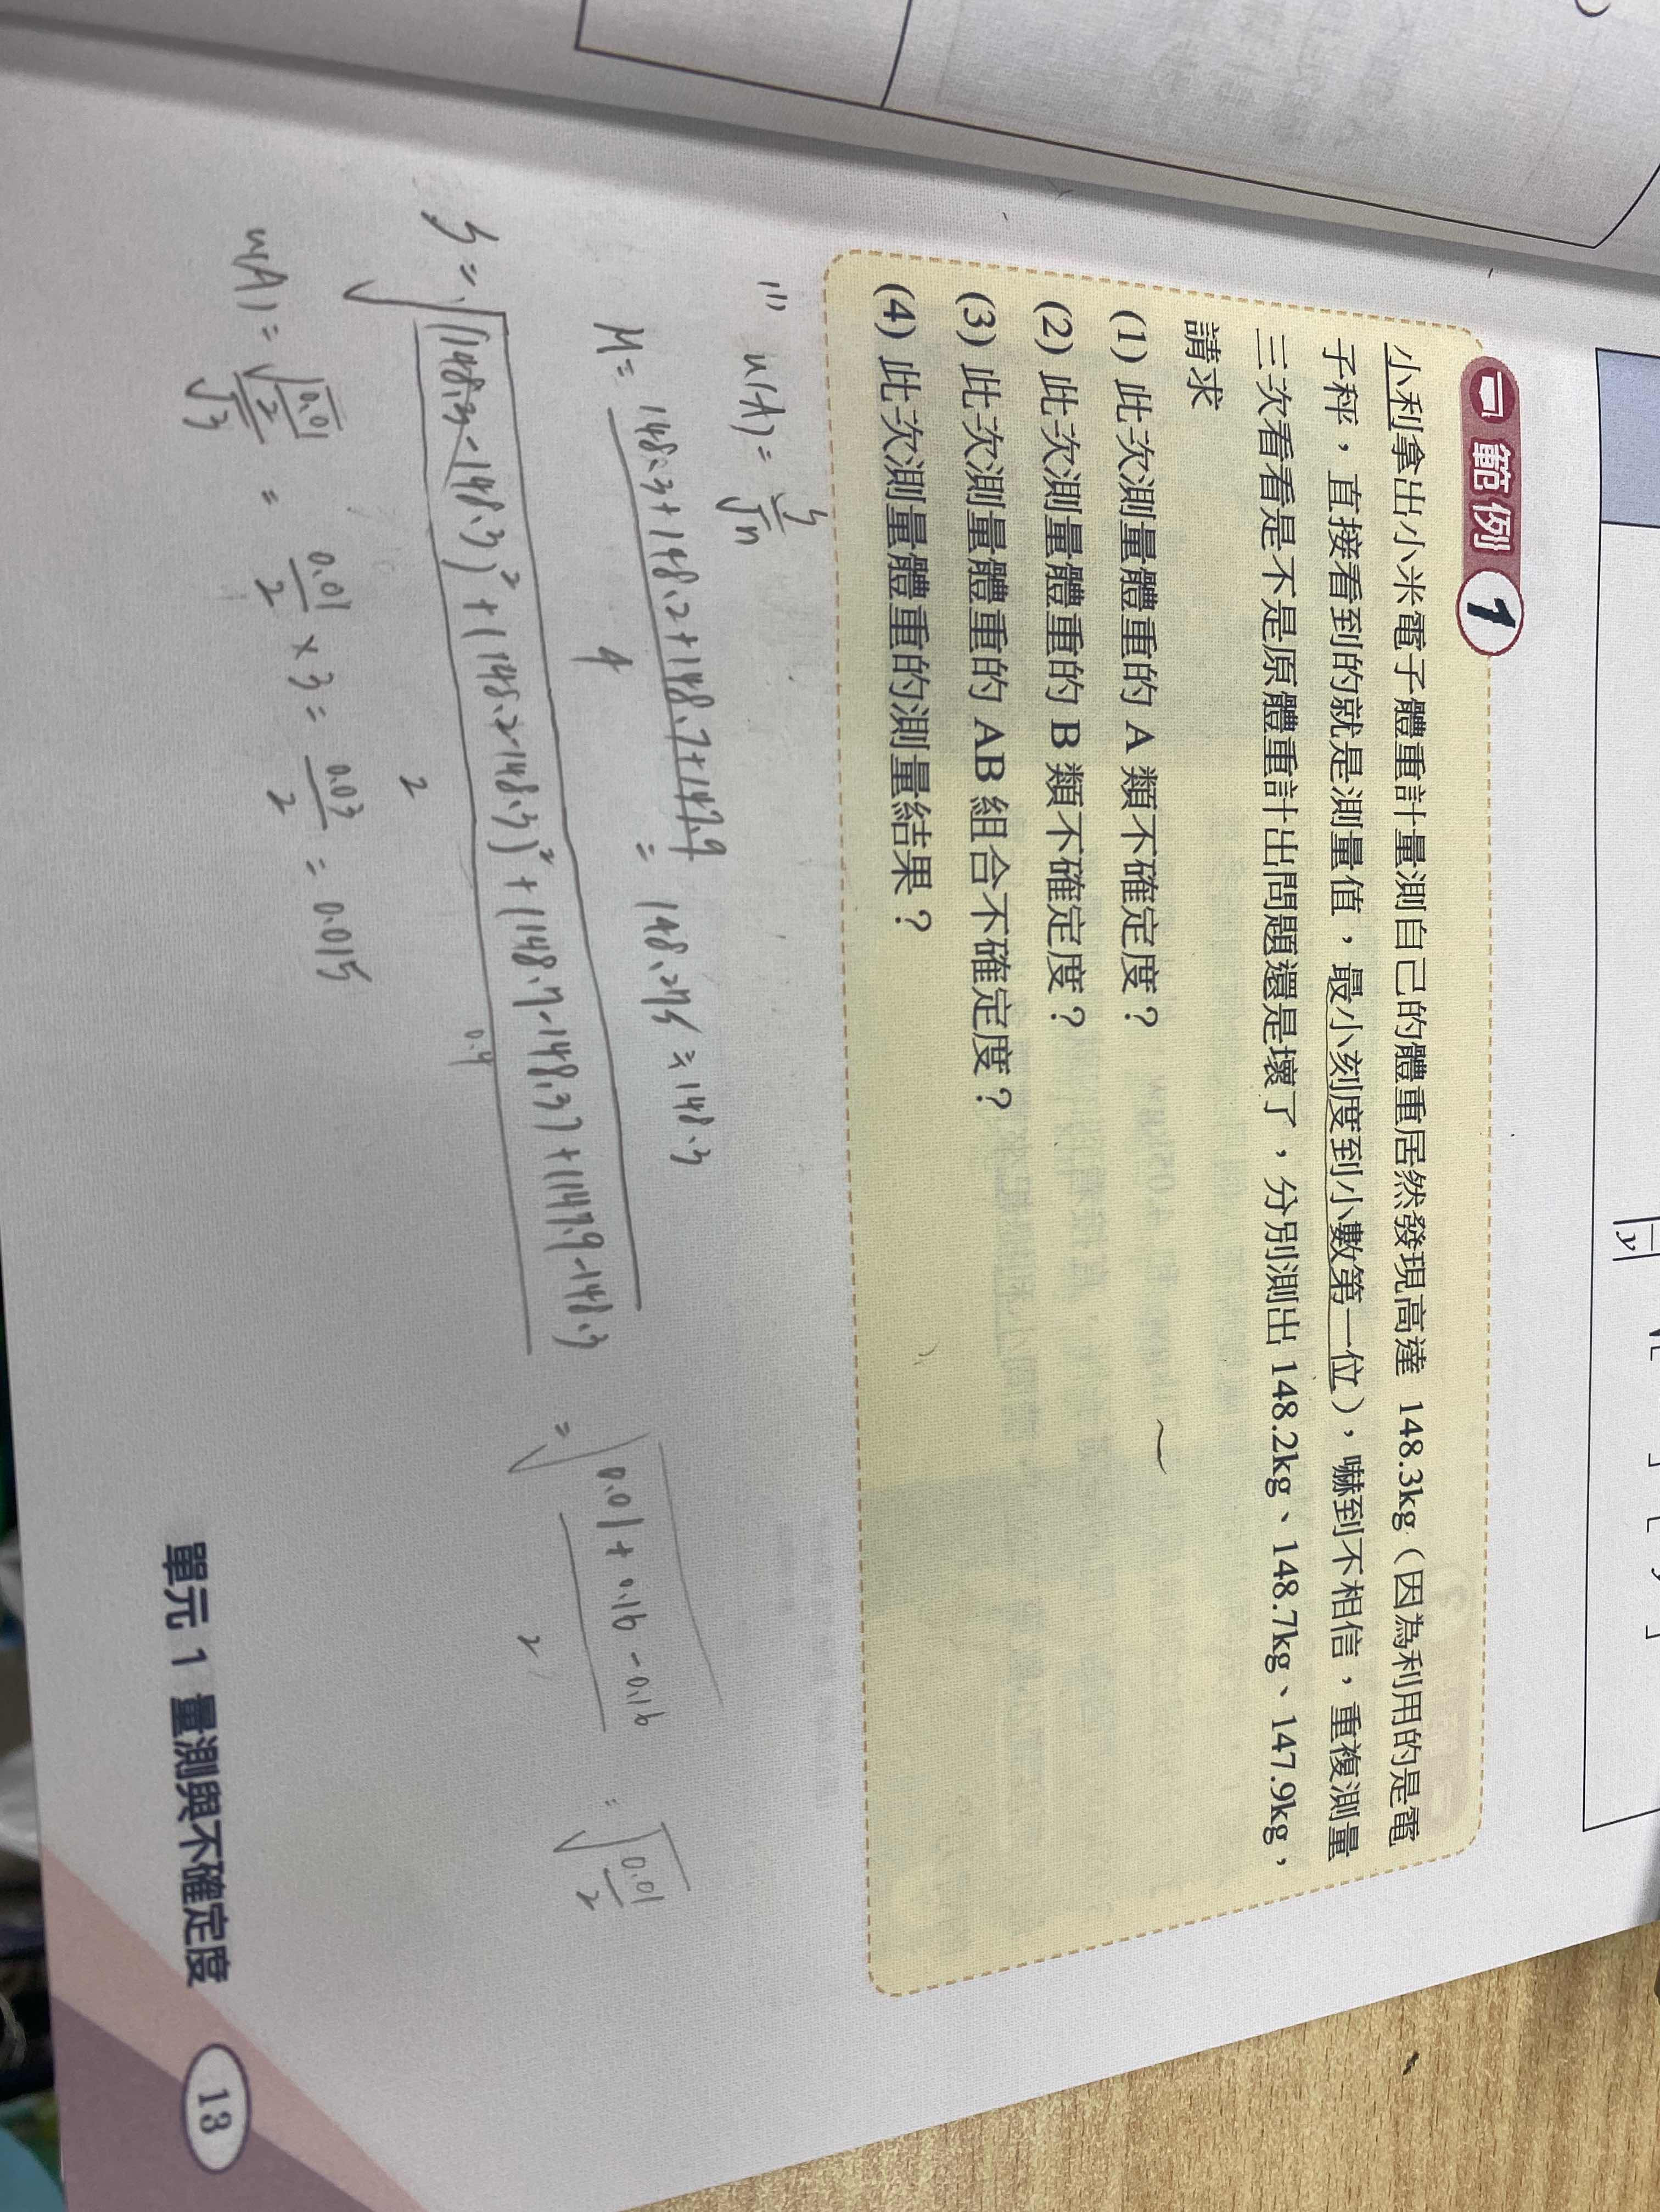 範例 1
小利拿出小米電子體重計量測自己的體重居然發現高達 148.3kg（因為利用的是電
子秤，直接看到的就是測量值，最小刻度到小數第一位），嚇到不相信，重複測量
三次看看是不是原體重計出問題還是壞了，分別測出 148.2kg、148.7kg、147.9kg，
請求
(1) 此次測量體重的 A 類不確定度？
(2) 此次測量體重的 B 類不確定度？
(3) 此次測量體重的 AB 組合不確定度？
(4) 此次測量體重的測量結果？
(1) u(A) = s/√n
M = (148.3+148.2+148.7+147.9)/4 = 148.275 ≒ 148.3
S = √((148.3-148.3)² + (148.2-148.3)² + (148.7-148.3) + (147.9-148.3)/2 = √(0.01 + 0.16 - 0.16)/2 = √(0.01/2)
0.4
u(A) = √(0.01/2)/√3 = 0.01/2 × 3 = 0.03/2 = 0.015
單元 1 量測與不確定度 13